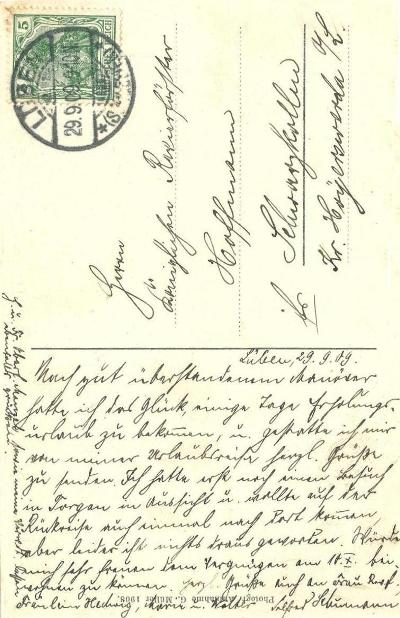 5
LÜBEN
29.9.09
Herrn
Königlichen Revierförster
Hoffmann
Schwarzkollm
Kr. Hoyerswerda O/L.
Lüben, 29.9.09.
Nach gut überstandenem Manöver
hatte ich das Glück, einige Tage Erholungs-
urlaub zu bekommen, u. gestatte ich mir
von meiner Urlaubsreise herzl. Grüße
zu senden. Ich hatte erst noch einen Besuch
in Torgau in Aussicht u. wollte auf der
Rückreise auch einmal nach dort kommen
aber leider ist nichts draus geworden. Würde
mich sehr freuen dem Vergnügen am 10.X. bei-
wohnen zu können. Herzl. Grüße auch an Frau
Fräulein Hedwig, u. Walter
Photogr. Aufnahme G. Müller 1908